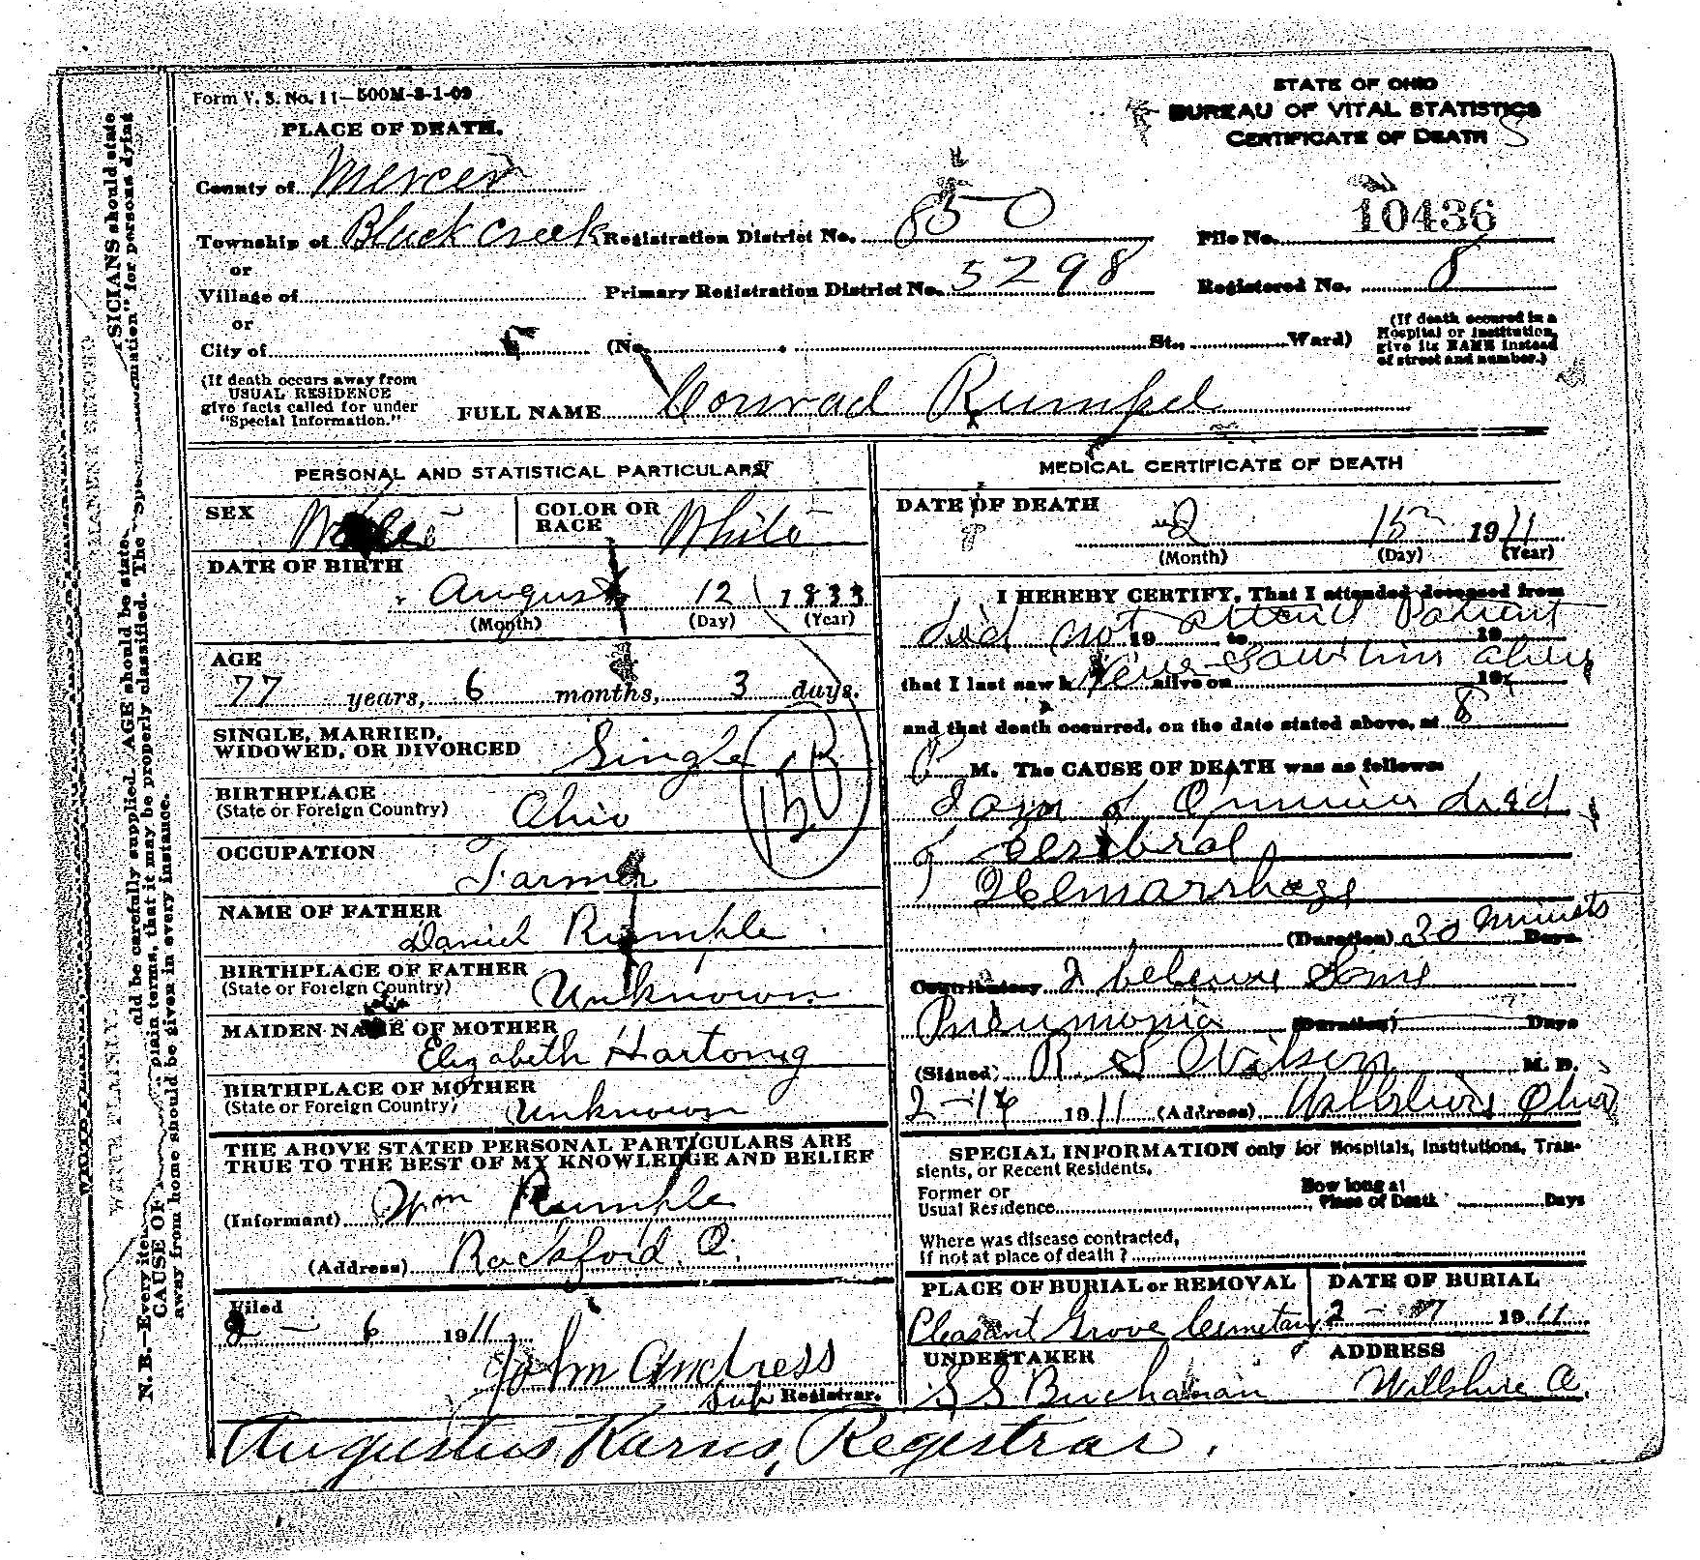 Form V. S. No. 11—500M-3-1-09
STATE OF OHIO
BUREAU OF VITAL STATISTICS
CERTIFICATE OF DEATH
PLACE OF DEATH.
County of Mercer
Township of Black Creek Registration District No. 850 File No. 10436
or
Village of Primary Registration District No. 5298 Registered No. 8
or
City of (No. St., Ward)
(If death occured in a
Hospital or Institution,
give its NAME instead
of street and number.)
(If death occurs away from
USUAL RESIDENCE
give facts called for under
"Special Information."
FULL NAME Conrad Rumpel
PERSONAL AND STATISTICAL PARTICULARS
SEX Male COLOR OR RACE White
DATE OF BIRTH
August 12 1833
(Month) (Day) (Year)
AGE
77 years, 6 months, 3 days.
SINGLE, MARRIED,
WIDOWED, OR DIVORCED Single
BIRTHPLACE
(State or Foreign Country) Ohio
OCCUPATION
Farmer
NAME OF FATHER
Daniel Rumple
BIRTHPLACE OF FATHER
(State or Foreign Country) Unknown
MAIDEN NAME OF MOTHER
Elizabeth Hartong
BIRTHPLACE OF MOTHER
(State or Foreign Country) Unknown
THE ABOVE STATED PERSONAL PARTICULARS ARE
TRUE TO THE BEST OF MY KNOWLEDGE AND BELIEF
(Informant) Wm Rumple
(Address) Rockford O.
Filed
2 — 6 1911
John Andress
Sub Registrar.
MEDICAL CERTIFICATE OF DEATH
DATE OF DEATH
2 15 1911
(Month) (Day) (Year)
I HEREBY CERTIFY, That I attended deceased from
did not attend Patient 19 to 19
that I last saw h never saw him alive on 19
and that death occurred, on the date stated above, at 8
P M. The CAUSE OF DEATH was as follows:
I am of Opinion died
of Cerebral
Hemarrhage
(Duration) 30 minuets Days
Contributory I believe Some
Pneumonia (Duration) Days
(Signed) R. S. Wilson M. D.
2-16 1911 (Address) Willshire Ohio
SPECIAL INFORMATION only for Hospitals, Institutions, Tran-
sients, or Recent Residents.
Former or
Usual Residence
How long at
Place of Death Days
Where was disease contracted,
if not at place of death?
PLACE OF BURIAL or REMOVAL DATE OF BURIAL
Pleasant Grove Cemetary 2 — 17 1911
UNDERTAKER ADDRESS
S S Buchanan Willshire O.
Augustus Karns, Registrar.
N. B.—Every item
ald be carefully supplied. AGE should be state
YSICIANS should state
CAUSE OF
plain terms, that it may be properly classified. The "Spe
ormation" for persons dying
away from home should be given in every instance.